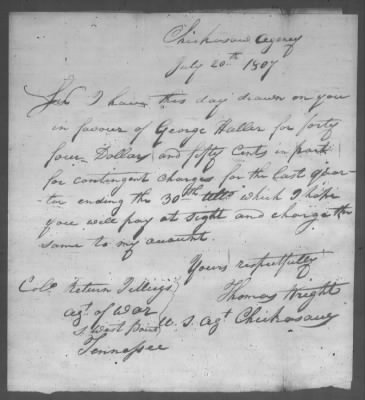 Chickasaw Agency
July 20th 1807
Sir I have this day drawn on you
in favour of George Haller for forty
four Dollars and fifty Cents in part
for contingent charges for the last quar-
ter ending the 30th ulto which I hope
you will pay at sight and charge the
same to my account.
Yours respectfully
Colo Return J Meigs Thomas Wright
agt of War U. S. Agt Chickasaws
S West Point
Tennessee